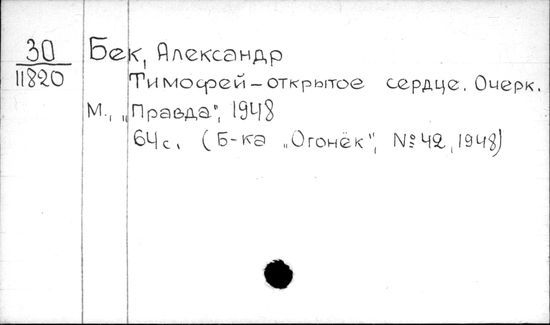 30
11820
Бек, Александр
Тимофей-открытое сердце. Очерк.
М., „Правда", 1948
64с. (Б-ка „Огонёк", № 42, 1948)